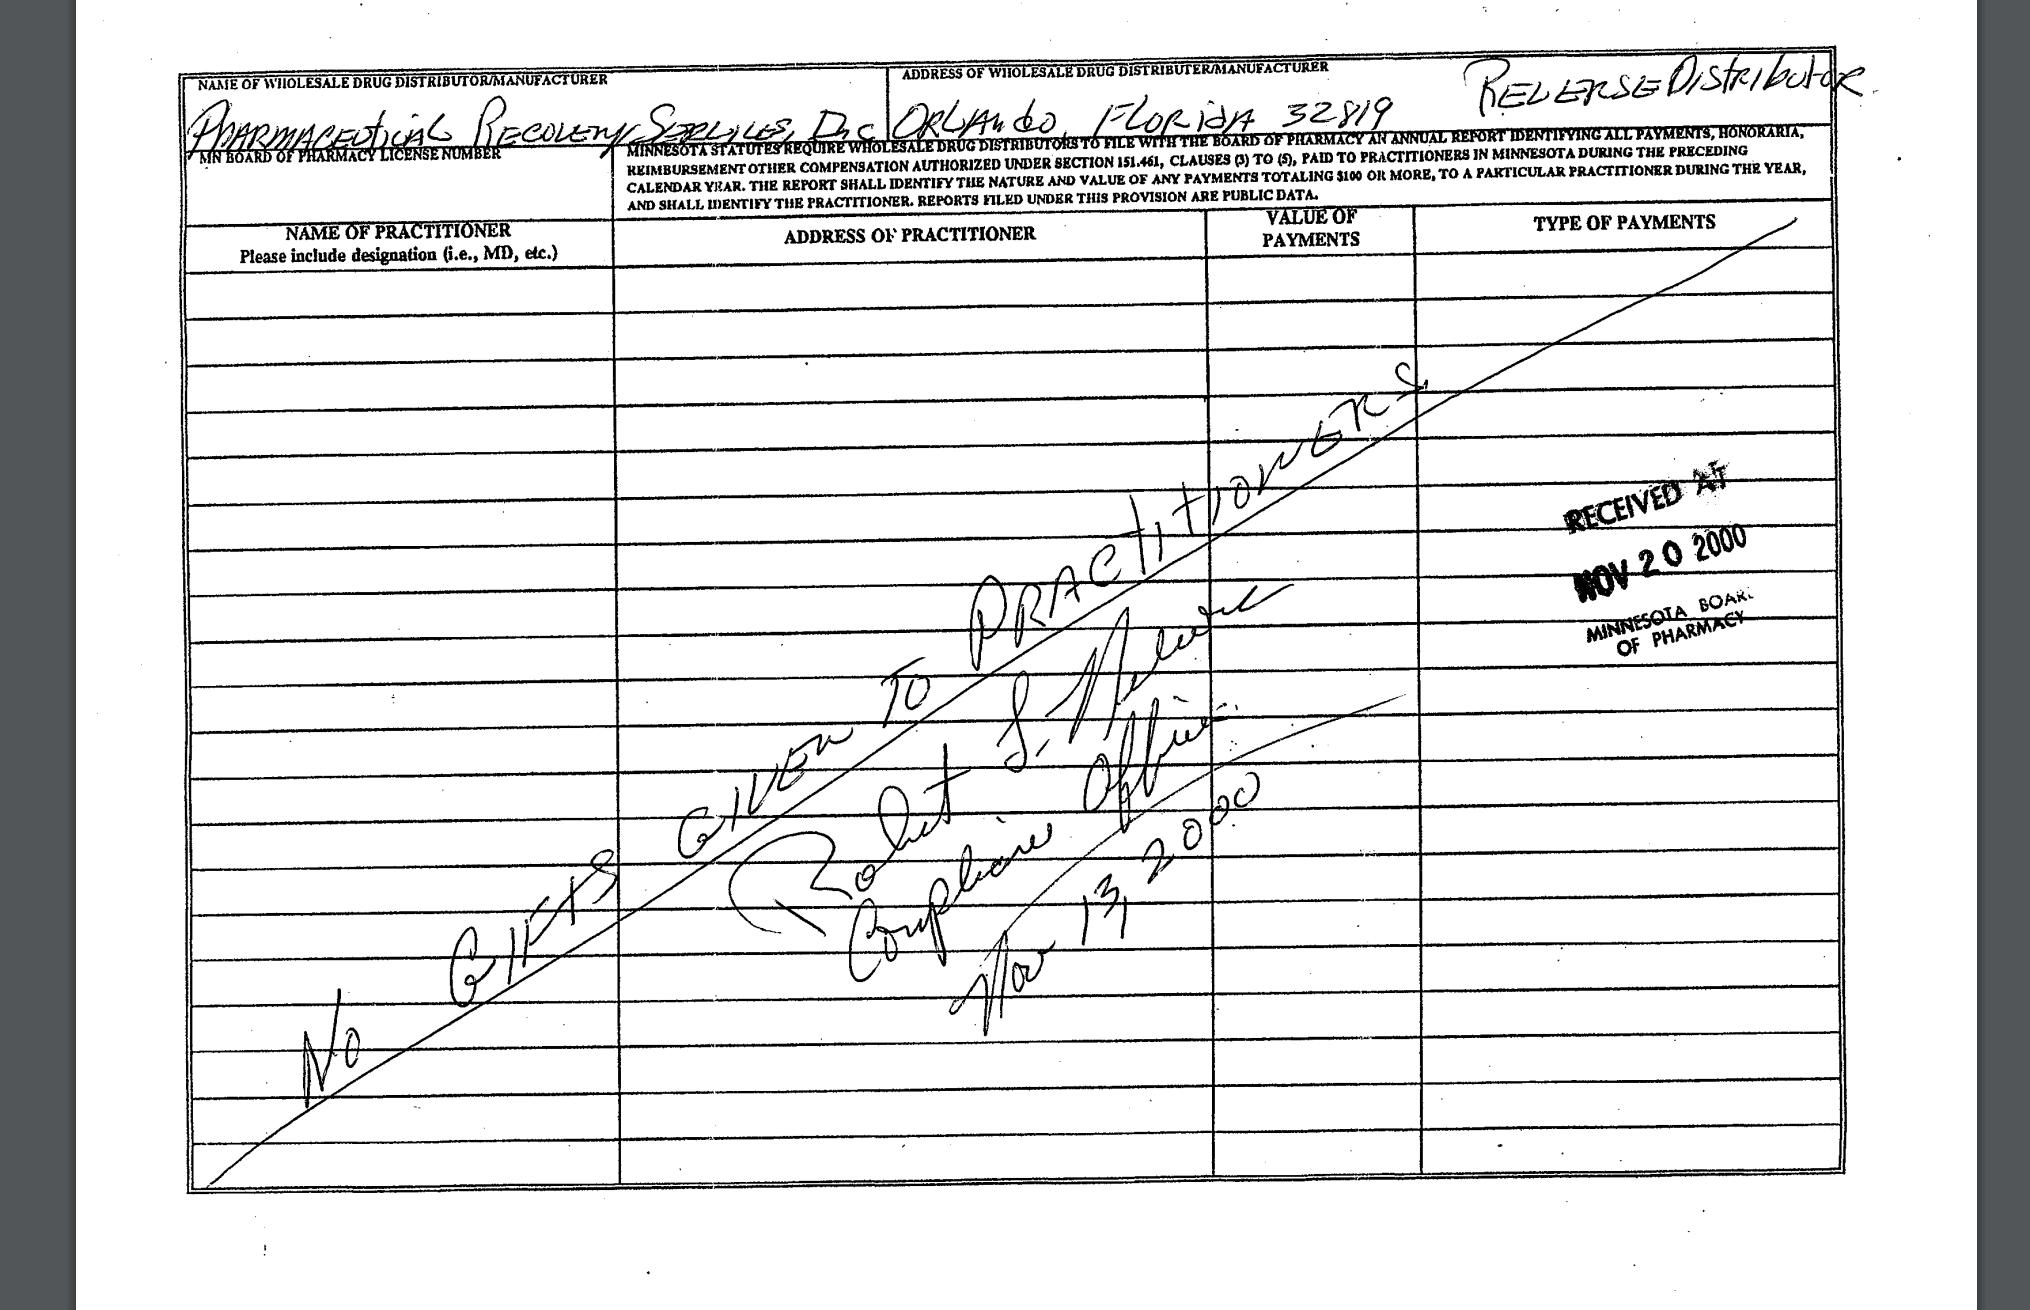 NAME OF WHOLESALE DRUG DISTRIBUTOR/MANUFACTURER
PHARMACEUTICAL RECOVERY SERVICES, Inc
ADDRESS OF WHOLESALE DRUG DISTRIBUTER/MANUFACTURER
REVERSE DISTRIBUTOR
ORLANDO, FLORIDA 32819
MN BOARD OF PHARMACY LICENSE NUMBER
MINNESOTA STATUTES REQUIRE WHOLESALE DRUG DISTRIBUTORS TO FILE WITH THE BOARD OF PHARMACY AN ANNUAL REPORT IDENTIFYING ALL PAYMENTS, HONORARIA,
REIMBURSEMENT OTHER COMPENSATION AUTHORIZED UNDER SECTION 151.461, CLAUSES (3) TO (5), PAID TO PRACTITIONERS IN MINNESOTA DURING THE PRECEDING
CALENDAR YEAR. THE REPORT SHALL IDENTIFY THE NATURE AND VALUE OF ANY PAYMENTS TOTALING $100 OR MORE, TO A PARTICULAR PRACTITIONER DURING THE YEAR,
AND SHALL IDENTIFY THE PRACTITIONER. REPORTS FILED UNDER THIS PROVISION ARE PUBLIC DATA.
NAME OF PRACTITIONER
Please include designation (i.e., MD, etc.)
ADDRESS OF PRACTITIONER
VALUE OF
PAYMENTS
TYPE OF PAYMENTS
NO GIFTS GIVEN TO PRACTITIONERS
Robert L.
Compliance Officer
Nov 13, 2000
RECEIVED AT
NOV 20 2000
MINNESOTA BOARD
OF PHARMACY